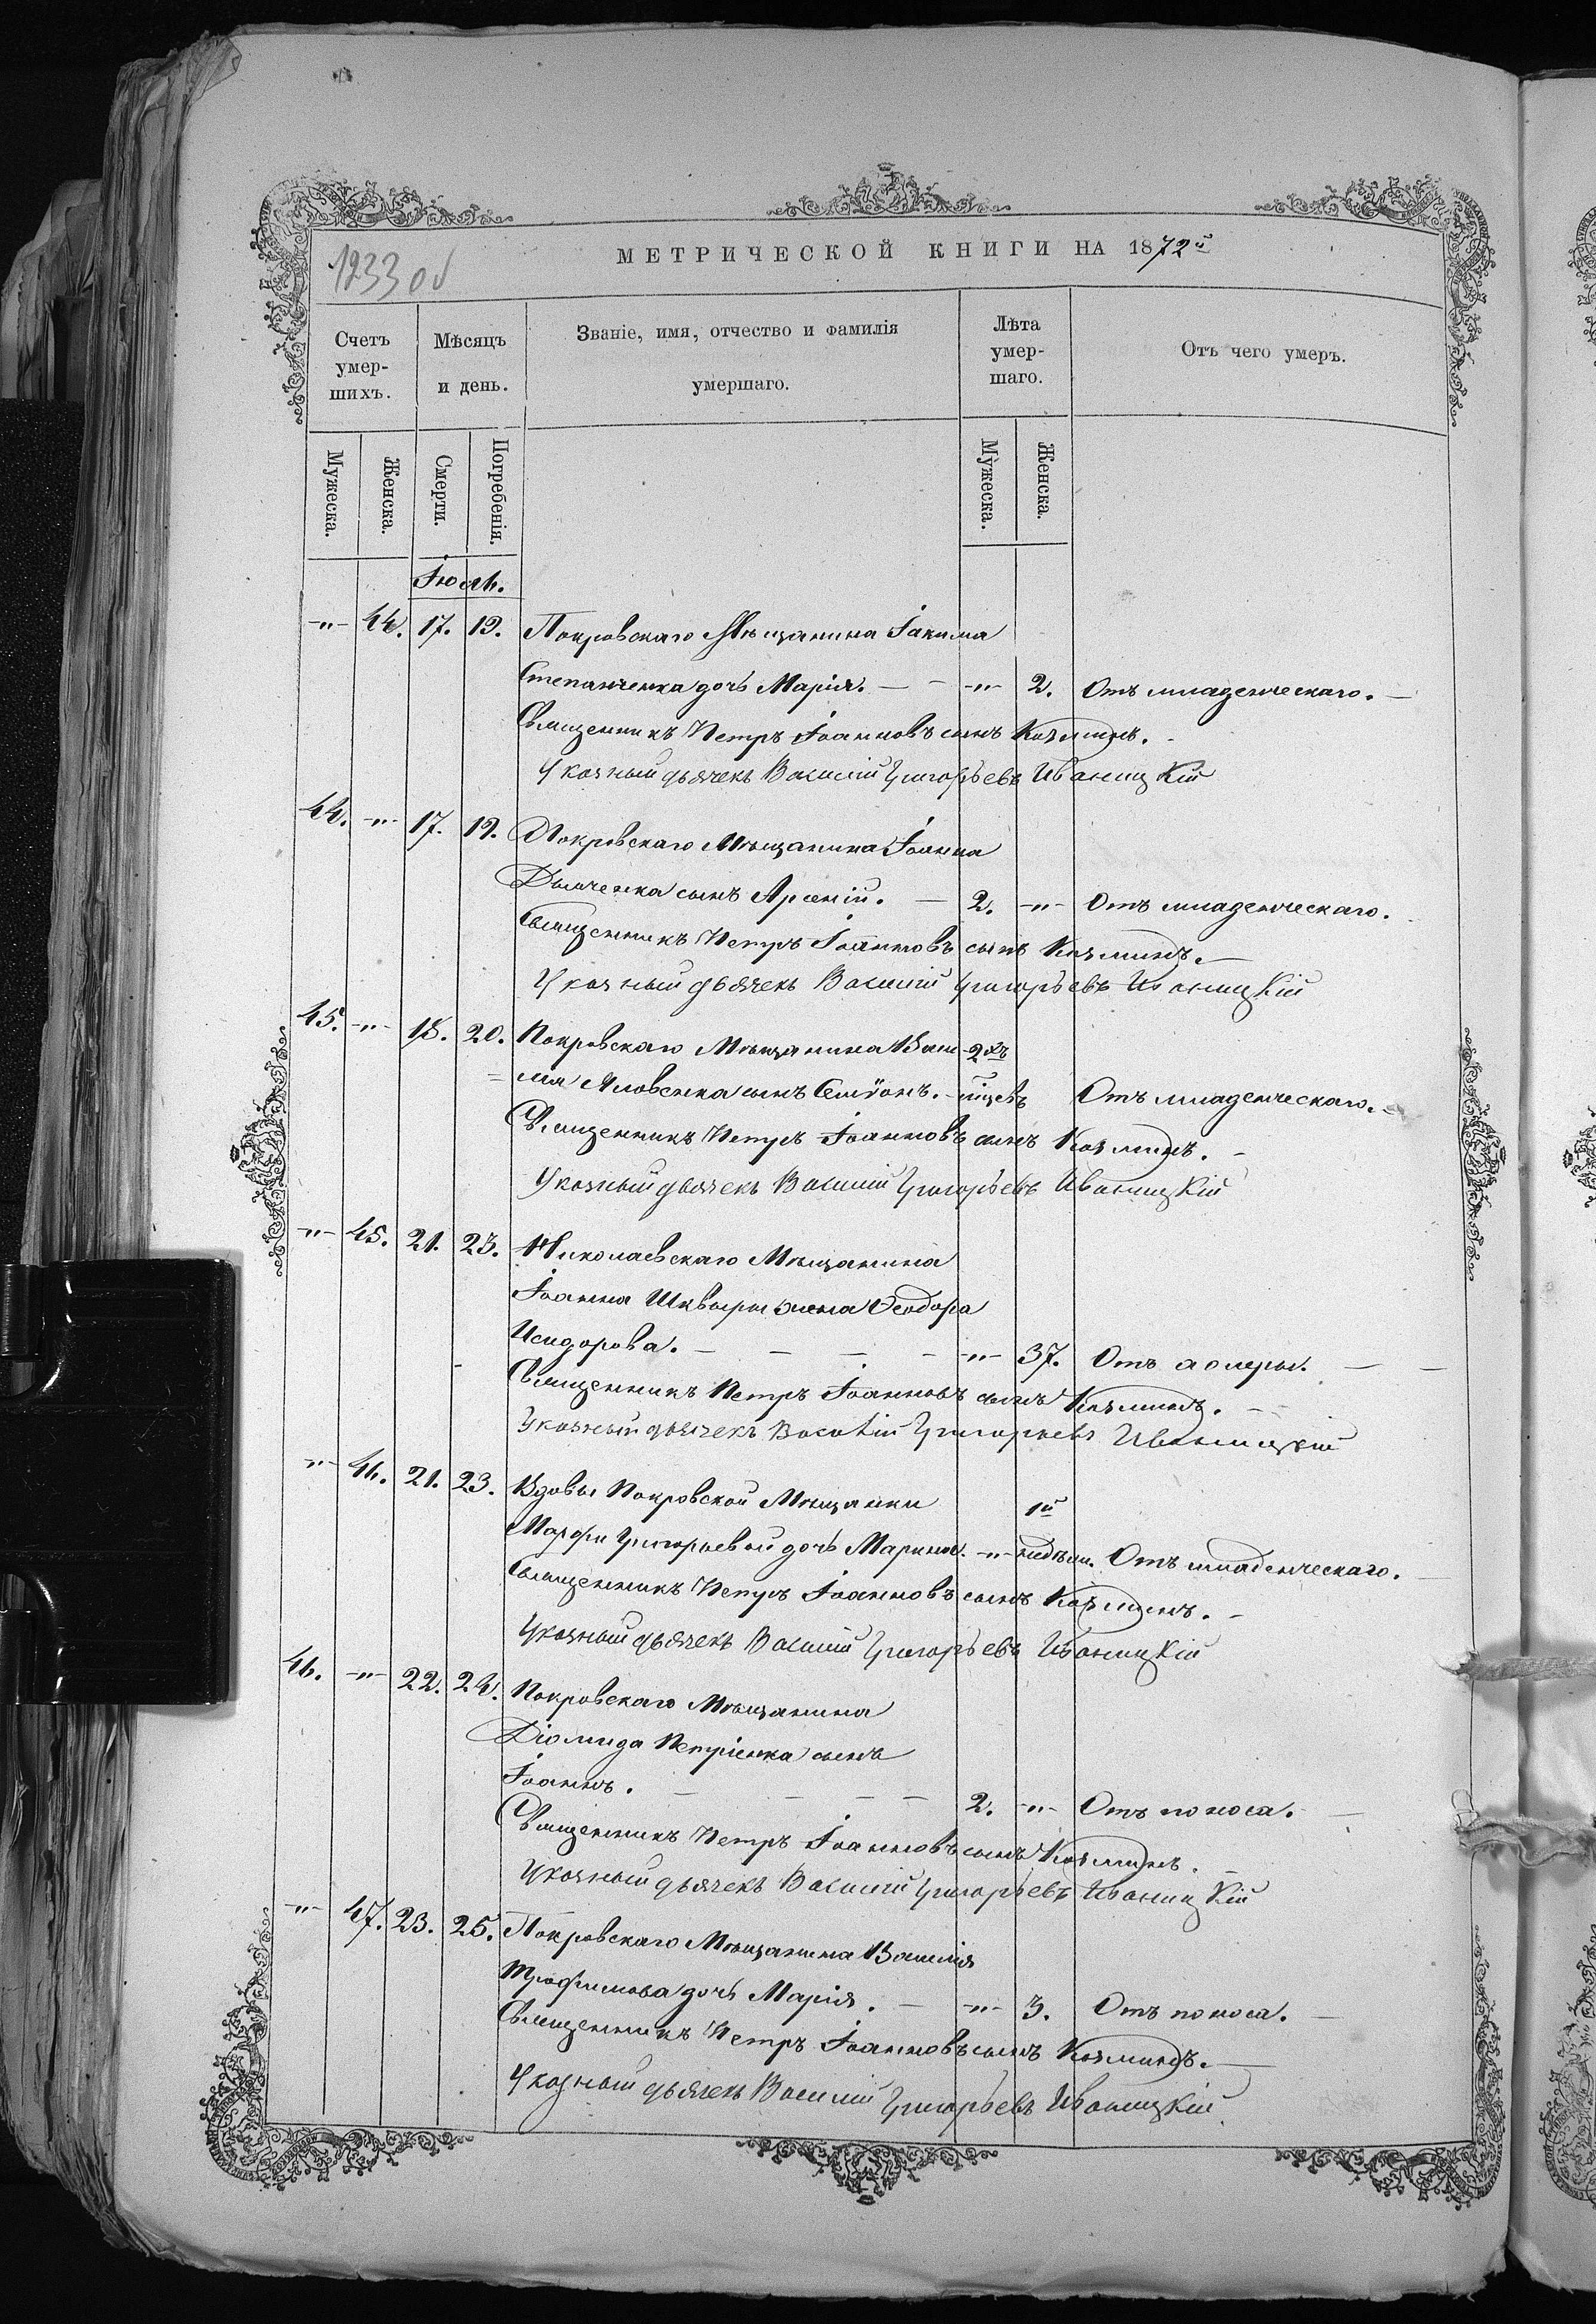 1233 об
МЕТРИЧЕСКОЙ КНИГИ НА 1872й
Счетъ умер-шихъ.
Мѣсяцъ и день.
Званіе, имя, отчество и фамилія умершаго.
Лѣта умер-шаго.
Отъ чего умеръ.
Мужеска.
Женска.
Смерти.
Погребенія.
Мужеска.
Женска.
Іюль.
-"- 44. 17. 19. Покровскаго Мѣщанина Іакима
Степанченка дочь Марія. -"- 2. Отъ младенческаго.
Священникъ Петръ Іоанновъ сынъ Козминъ.
Указный дьячекъ Василій Григорьевъ Иваницкій
44. -"- 17. 19. Покровскаго Мѣщанина Іоанна
Дьяченка сынъ Арсеній. 2. -"- Отъ младенческаго.
Священникъ Петръ Іоанновъ сынъ Козминъ.
Указный дьячекъ Василій Григорьевъ Иваницкій
45. -"- 18. 20. Покровскаго Мѣщанина Васи- 2хъ
=лія сынъ Симѵонъ. Отъ младенческаго.
Священникъ Петръ Іоанновъ сынъ Козминъ.
Указный дьячекъ Василій Григорьевъ Иваницкій
-"- 45. 21. 23. Николаевскаго Мѣщанина
Іоанна Шквыри жена Ѳеодора
Исидорова. -"- 37. Отъ холеры.
Священникъ Петръ Іоанновъ сынъ Козминъ.
Указный дьячекъ Василій Григорьевъ Иваницкій
-"- 46. 21. 23. Вдовы Покровской Мѣщанки 1й
Марфы Григорьевой дочь Марина. -"- недѣли. Отъ младенческаго.
Священникъ Петръ Іоанновъ сынъ Козминъ.
Указный дьячекъ Василій Григорьевъ Иваницкій
46. -"- 22. 24. Покровскаго Мѣщанина
Діомида Петріенка сынъ
Іоаннъ. 2. -"- Отъ поноса.
Священникъ Петръ Іоанновъ сынъ Козминъ.
Указный дьячекъ Василій Григорьевъ Иваницкій
-"- 47. 23. 25. Покровскаго Мѣщанина Василія
Трофимова дочь Марія. -"- 3. Отъ поноса.
Священникъ Петръ Іоанновъ сынъ Козминъ.
Указный дьячекъ Василій Григорьевъ Иваницкій